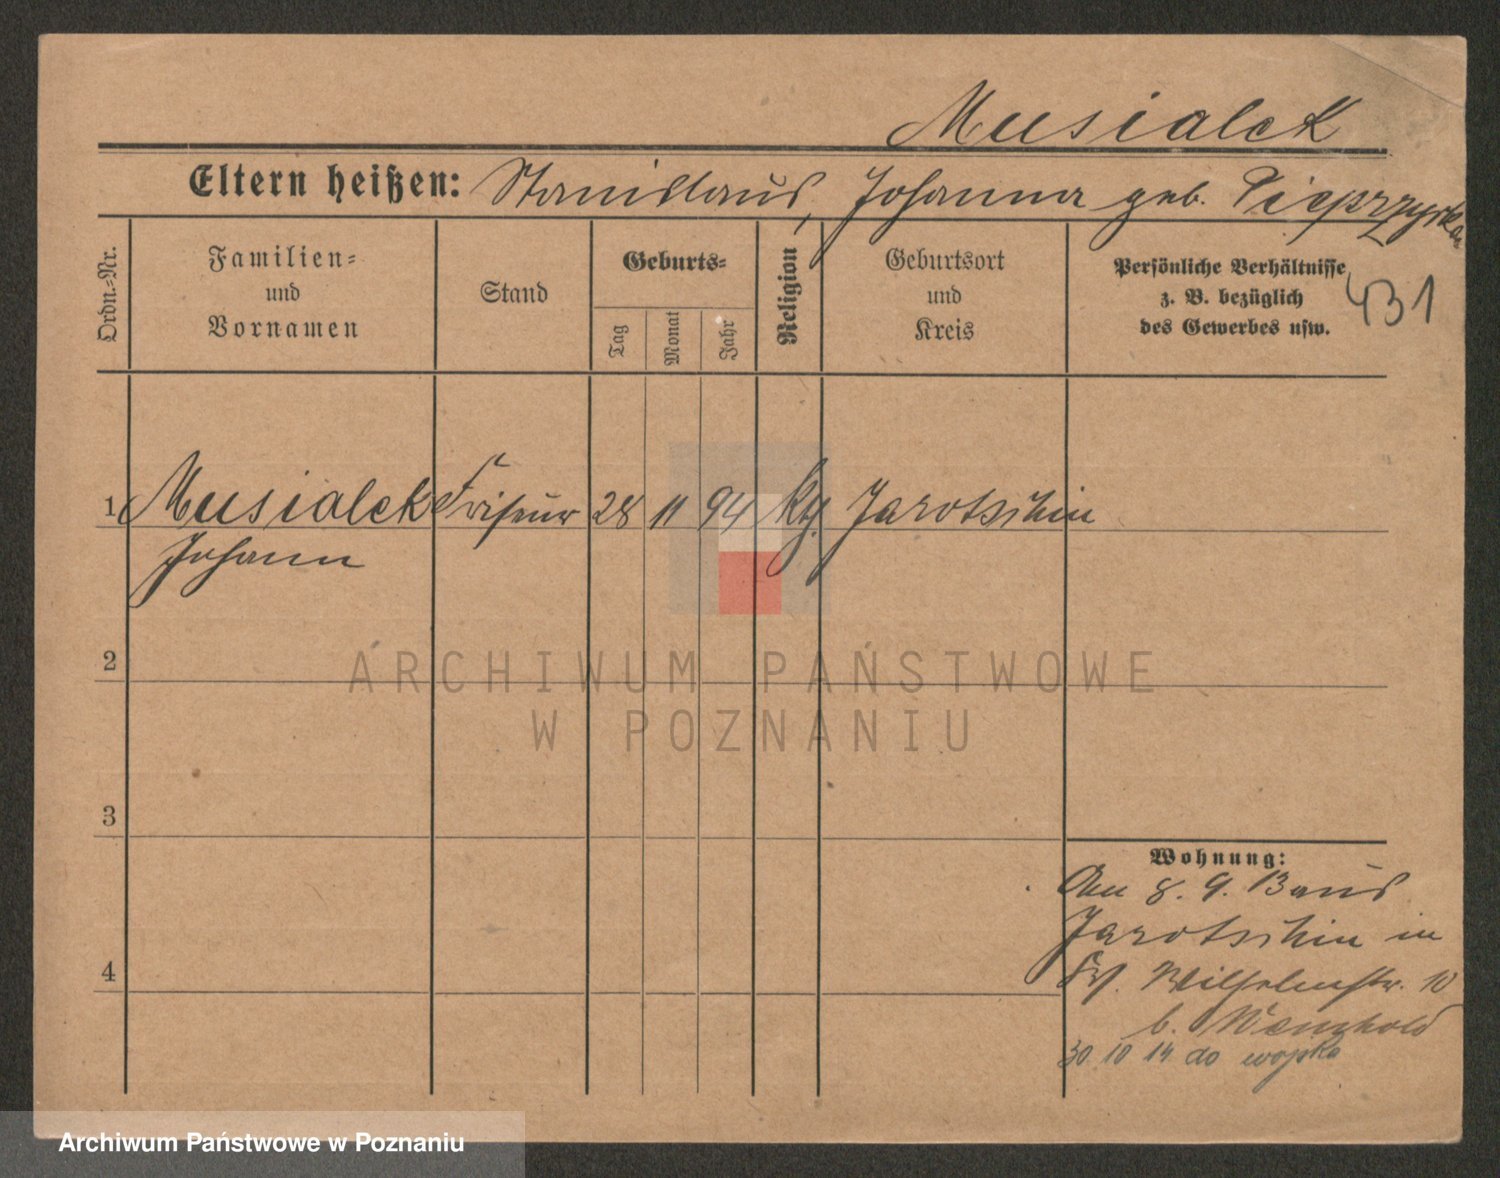 Musialek
Eltern heißen: Stanislaus, Johanna geb. Pieprzycka
Ordn.-Nr.
Familien-
und
Vornamen
Stand
Geburts-
Tag
Monat
Jahr
Religion
Geburtsort
und
Kreis
Persönliche Verhältnisse
z. B. bezüglich
des Gewerbes usw.
431
1 Musialek Friseur 28 11 94 kth. Jarotschin
Johann
2
3
4
ARCHIWUM PAŃSTWOWE
W POZNANIU
Wohnung:
Am 8. 9. 13 aus
Jarotschin in
Wilhelmstr. 10
b.
30. 10 14 do wojska
Archiwum Państwowe w Poznaniu